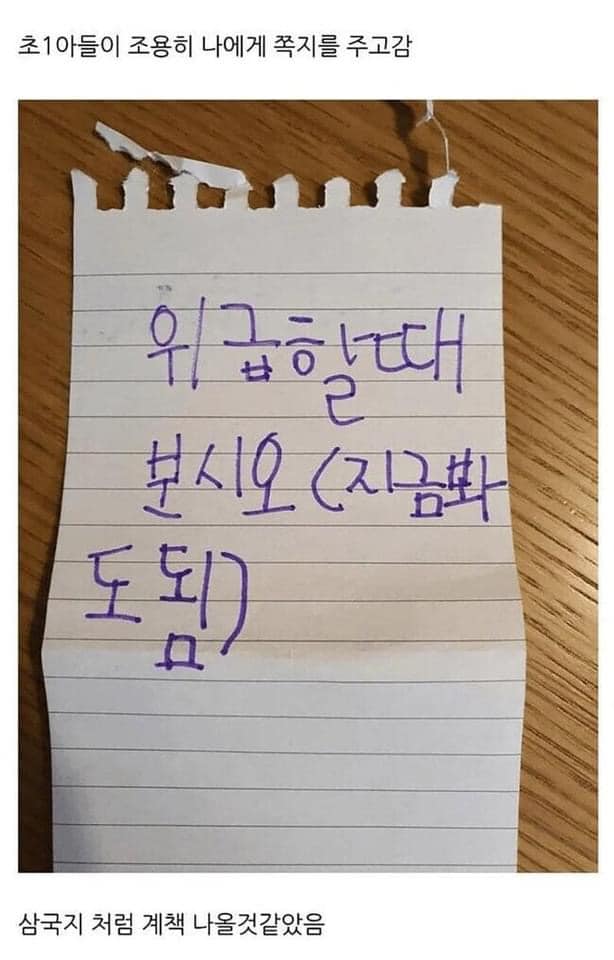 초1아들이 조용히 나에게 쪽지를 주고감
위급할때
분시오 (지금봐
도 됨)
삼국지 처럼 계책 나올것같았음